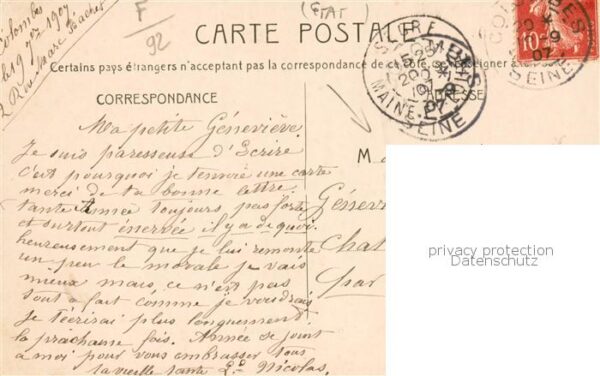 Colombes
le 19 7re 1907
2 Rue Marc
F
92
(ETAT)
CARTE POSTALE
Certains pays étrangers n'acceptant pas la correspondance de ce côté, se renseigner à la Poste
CORRESPONDANCE
ADRESSE
COLOMBES
SEINE
Ma petite Géneviève
Je suis paresseuse d'Ecrire
C'est pourquoi je t'envoie une carte
merci de ta bonne lettre.
tante Année toujours pas forte
et surtout énervée il y a de quoi.
heureusement que je lui remonte
un peu le morale je vais
mieux mais, ce n'est pas
tout a fait comme je voudrais
Je t'écrirai plus longuement
la prochaine fois. Année se joint
a moi pour vous embrasser tous
ta vieille tante L. Nicolas.
M
Génev
Chat
par
privacy protection
Datenschutz